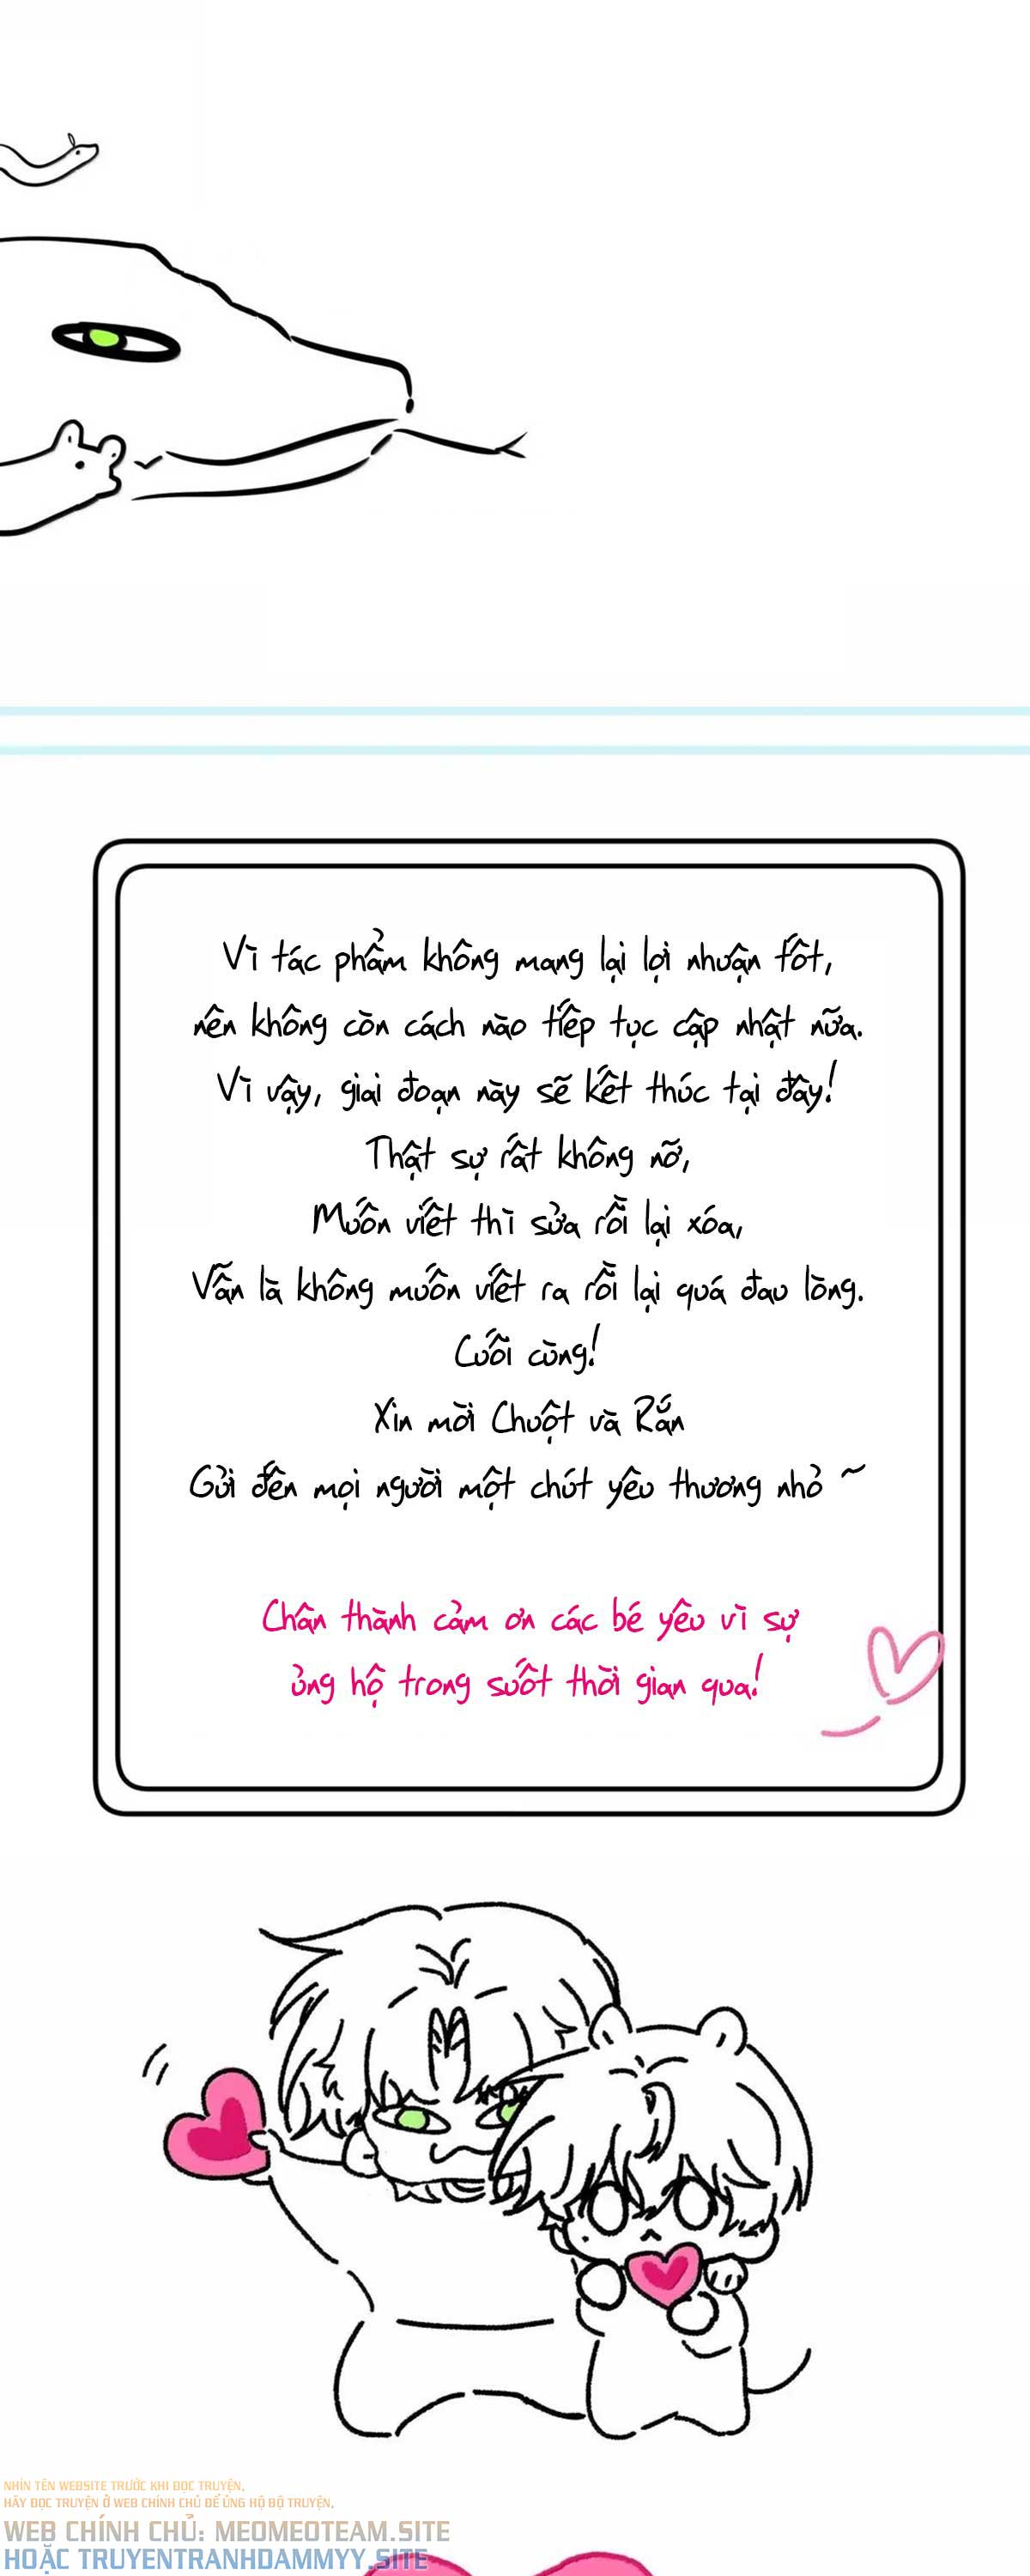 Vì tác phẩm không mang lại lợi nhuận tốt,
nên không còn cách nào tiếp tục cập nhật nữa.
Vì vậy, giai đoạn này sẽ kết thúc tại đây!
Thật sự rất không nỡ,
Muốn viết thì sửa rồi lại xóa,
Vẫn là không muốn viết ra rồi lại quá đau lòng.
Cuối cùng!
Xin mời Chuột và Rắn
Gửi đến mọi người một chút yêu thương nhỏ ~
Chân thành cảm ơn các bé yêu vì sự
ủng hộ trong suốt thời gian qua!
NHÌN TÊN WEBSITE TRƯỚC KHI ĐỌC TRUYỆN,
HÃY ĐỌC TRUYỆN Ở WEB CHÍNH CHỦ ĐỂ ỦNG HỘ BỘ TRUYỆN,
WEB CHÍNH CHỦ: MEOMEOTEAM.SITE
HOẶC TRUYENTRANHDAMMYY.SITE